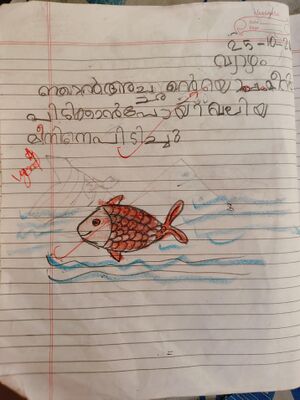 25-10-2
വ്യാഴം
ഞാൻ അച്ഛന്റെയൊപ്പം മീൻ
പിടിക്കാൻ പോയി വലിയ
മീനിനെ പിടിച്ചു